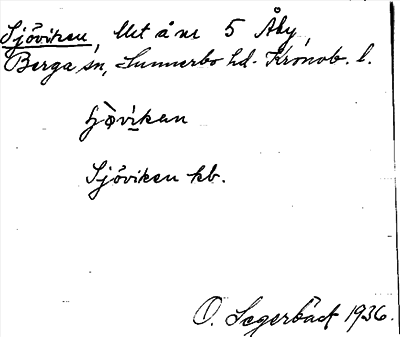 Sjöviken, Uet å nr 5 Åby,
Berga sn, Sunnerbo hd. Kronob. l.
ʃjòvikan
Sjöviken kb.
O. Segerbäck 1936.